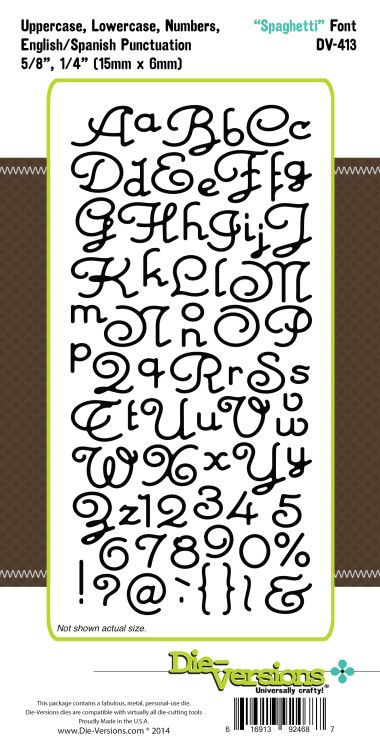 Uppercase, Lowercase, Numbers,
English/Spanish Punctuation
5/8”, 1/4” (15mm x 6mm)
“Spaghetti” Font
DV-413
A a B b C c
D d E e F f g
G H h I i j J
K k L l M
m N o n O P
p Q q R r S s
T t U u V v u
W X x Y y
Z z 1 2 3 4 5
6 7 8 9 0 %
! ? @ - ' { } ( &
Not shown actual size.
Die-Versions
Universally crafty!®
This package contains a fabulous, metal, personal-use die.
Die-Versions dies are compatible with virtually all die-cutting tools
Proudly Made in the U.S.A.
www.Die-Versions.com © 2014
6 16913 92468 7